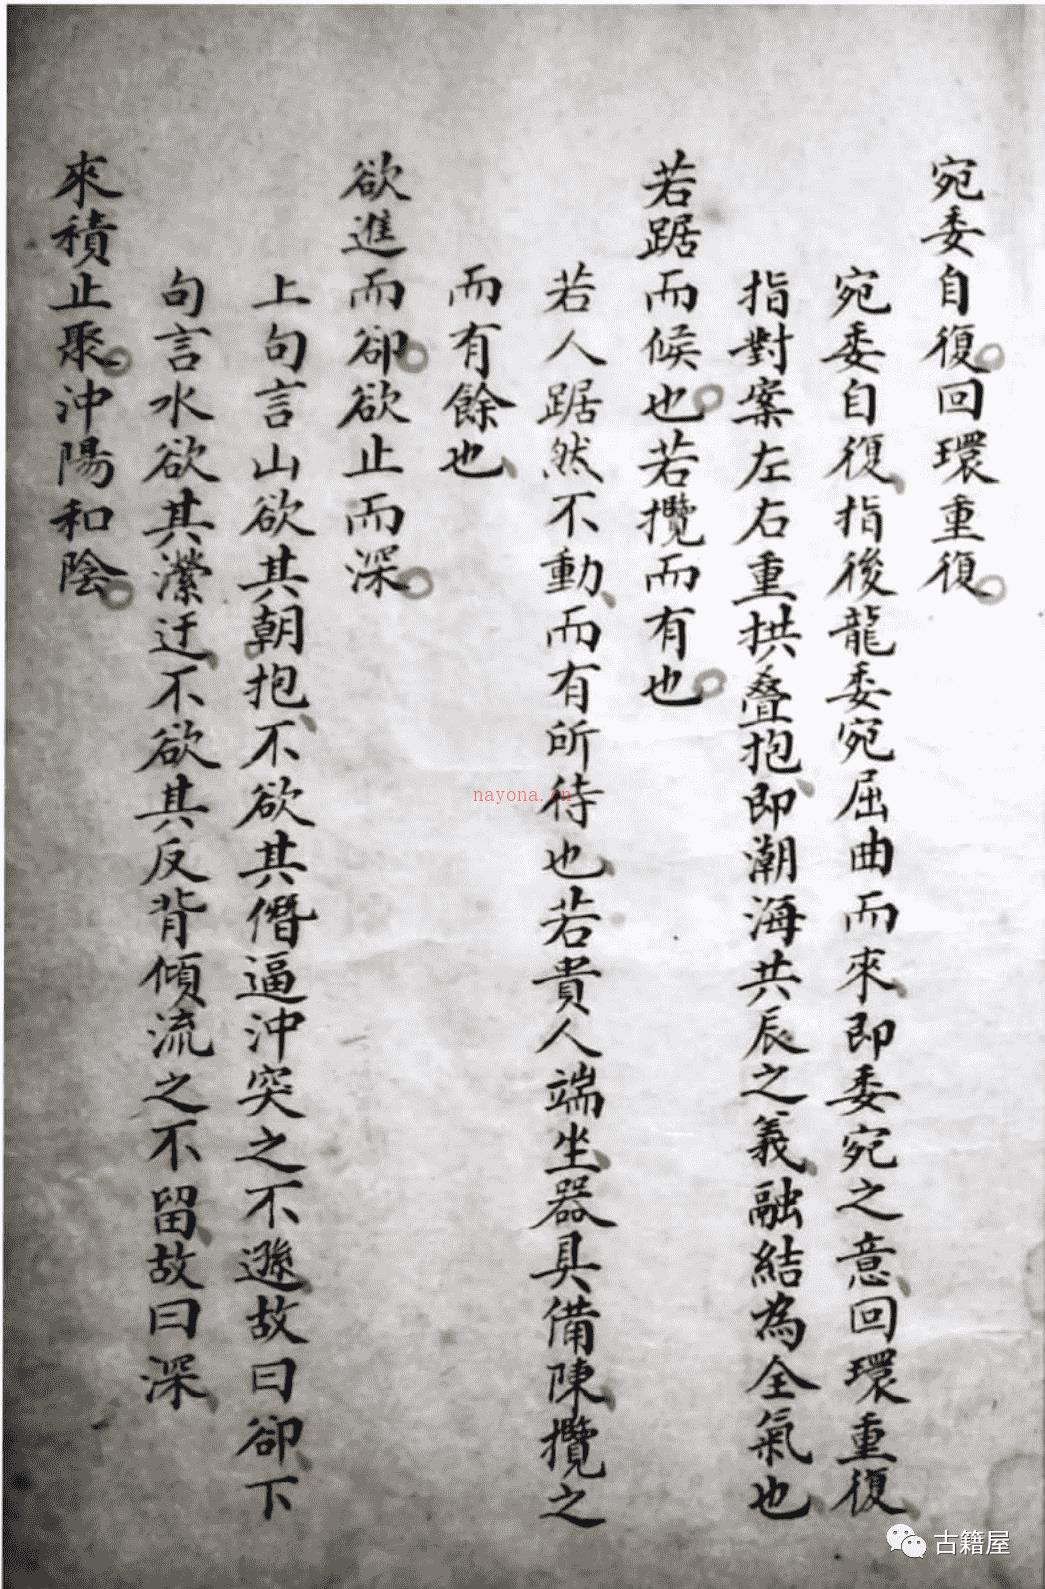 宛委自復回環重復
宛委自復指後龍委宛屈曲而來即委宛之意回環重復
指對案左右重拱叠抱即潮海共辰之義融結為全氣也
若踞而候也若攬而有也
若人踞然不動而有所待也若貴人端坐器具備陳攬之
而有餘也
欲進而卻欲止而深
上句言山欲其朝抱不欲其僭逼沖突之不遜故曰卻下
句言水欲其瀠迂不欲其反背傾流之不留故曰深
來積止聚沖陽和陰
nayona.cn
古籍屋